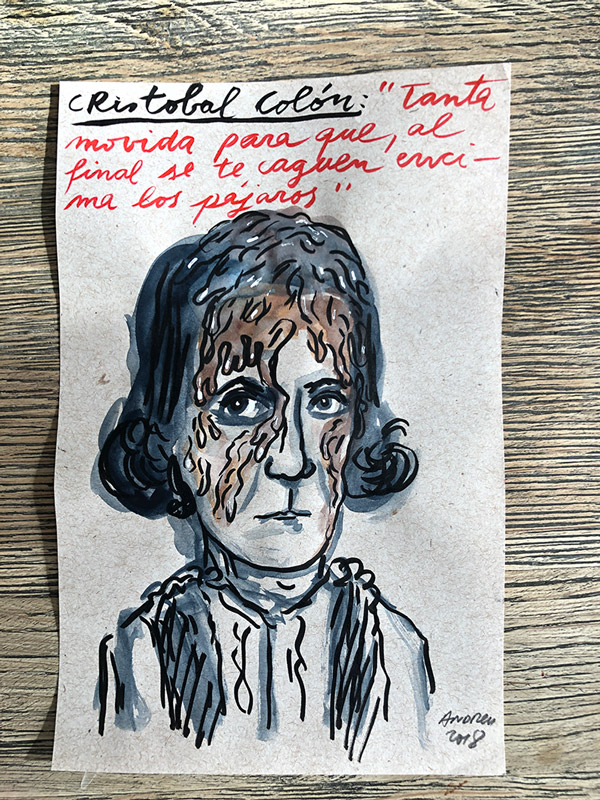 CRistobal Colón: "Tanta
movida para que, al
final se te caguen enci-
ma los pájaros"
Andreu
2018